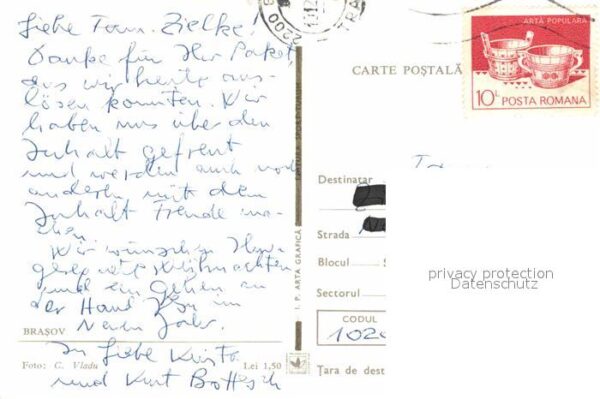 Liebe Fam. Zielke!
Danke für Ihr Paket,
das wir heute aus-
lösen konnten. Wir
haben uns über den
Inhalt gefreut
und werden auch noch
andern mit dem
Inhalt Freude ma-
chen.
Wir wünschen Ihnen
gesegnete Weihnachten
und ein Gehen an
der Hand Jesu im
Neuen Jahr.
In Liebe
und Kurt Bottesch
BRAȘOV
Foto: C. Vladu
Lei 1,50
I. P. ARTA GRAFICĂ
2200
CARTE POȘTALĂ
ARTĂ POPULARĂ
10L POSTA ROMANA
Destinatar
Strada
Blocul
Sectorul
CODUL
102
Țara de dest
privacy protection
Datenschutz